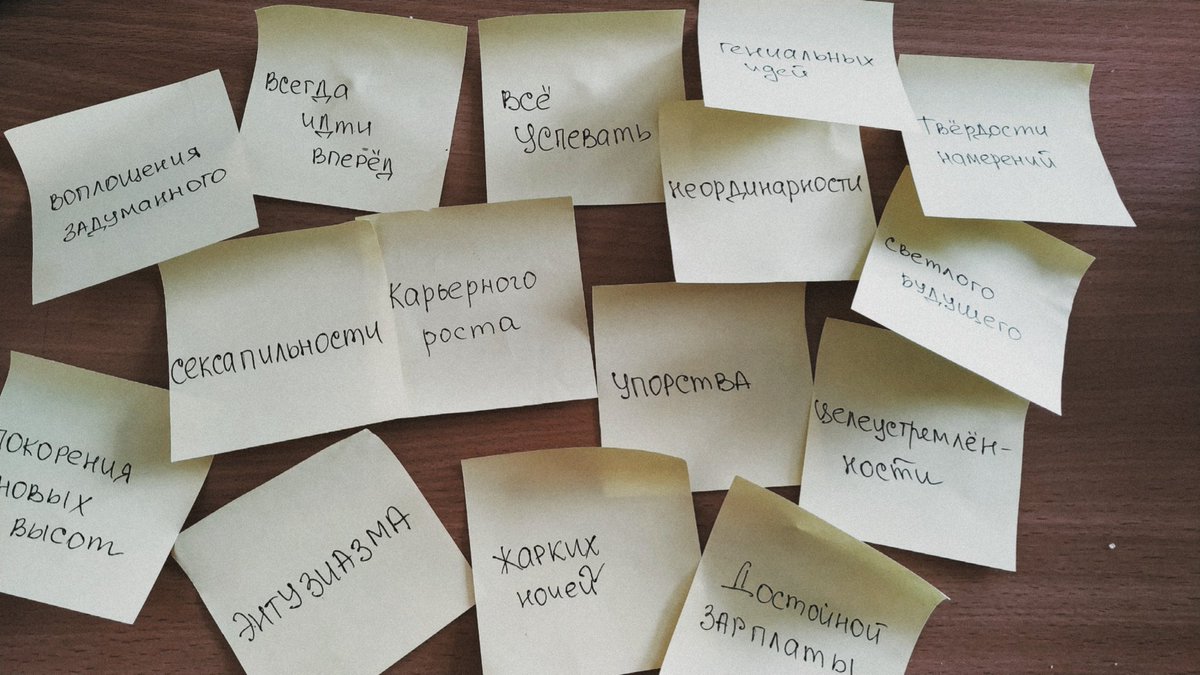 гениальных
идей
Всегда
идти
вперёд
Всё
успевать
Твёрдости
намерений
воплощения
задуманного
неординарности
светлого
будущего
сексапильности
карьерного
роста
упорства
целеустремлён-
ности
покорения
новых
высот
энтузиазма
жарких
ночей
Достойной
зарплаты